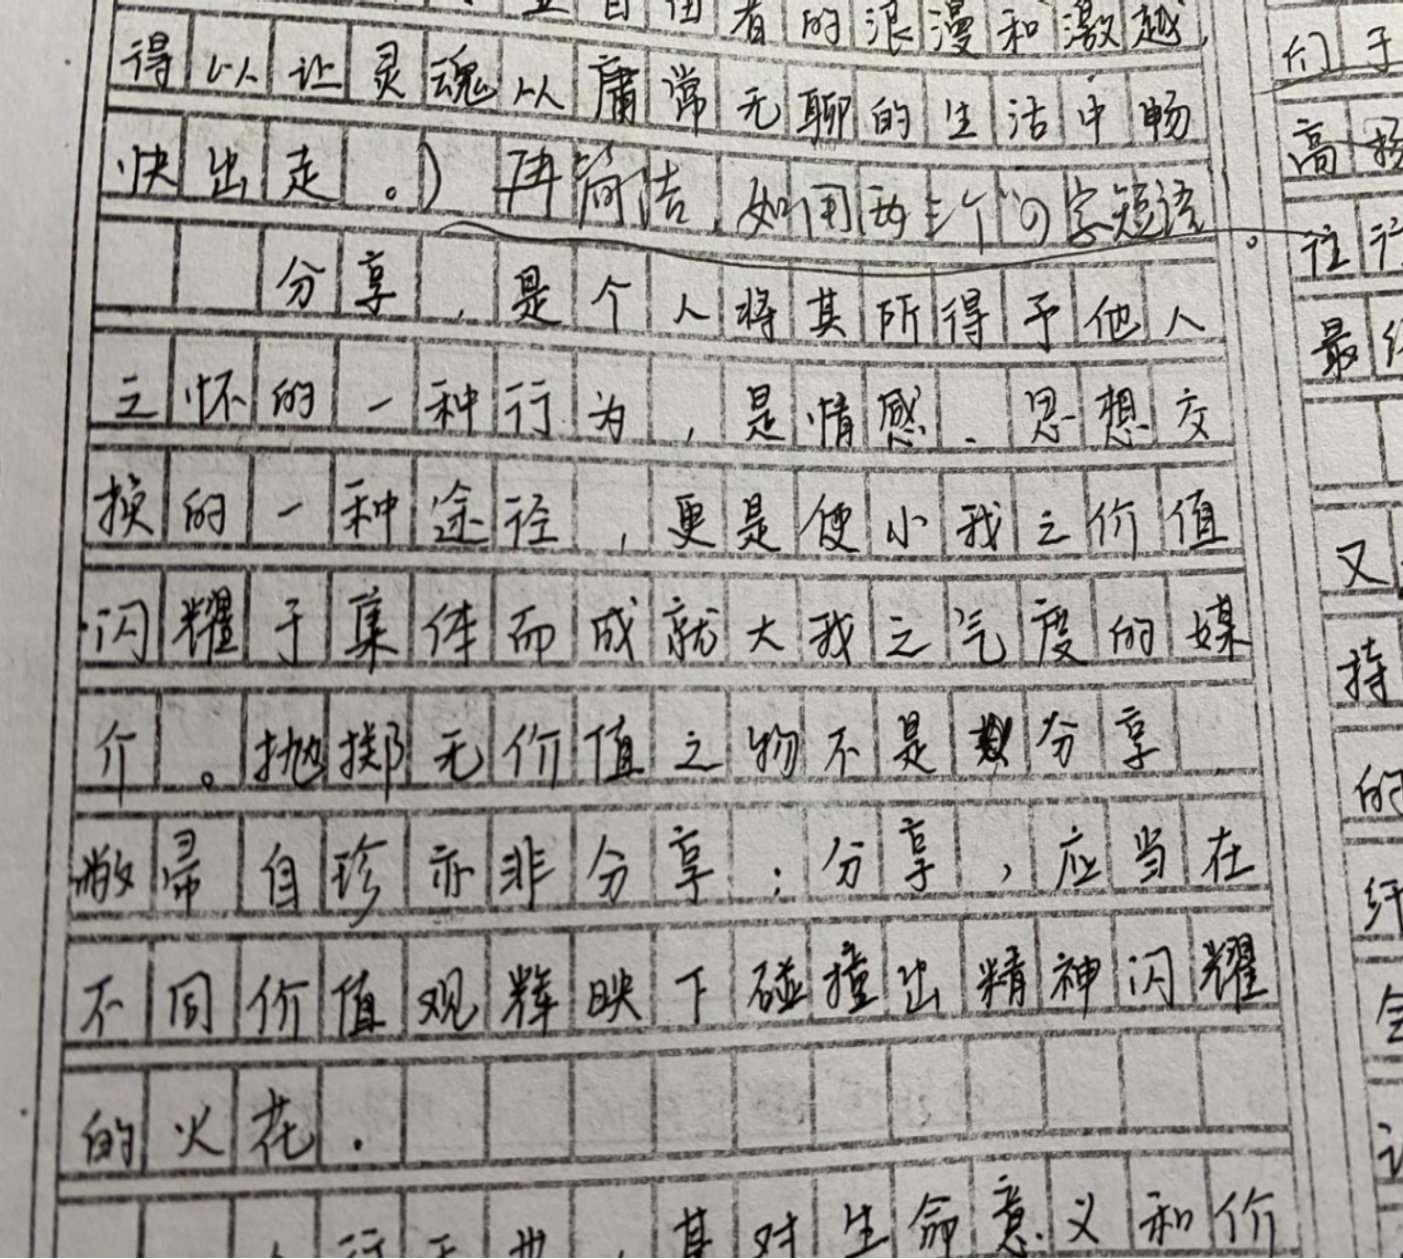 自由者的浪漫和激越,
得以让灵魂从庸常无聊的生活中畅
快出走。) 再简洁,如用两三个"的"字短语。
分享,是个人将其所得予他人
之怀的一种行为,是情感、思想交
换的一种途径,更是使小我之价值
闪耀于集体而成就大我之气度的媒
介。抛掷无价值之物不是分享
敝帚自珍亦非分享;分享,应当在
不同价值观辉映下碰撞出精神闪耀
的火花.
行于世,其对生命意义和价
们于
高扬
往往
最终
又
持
的
纤
会